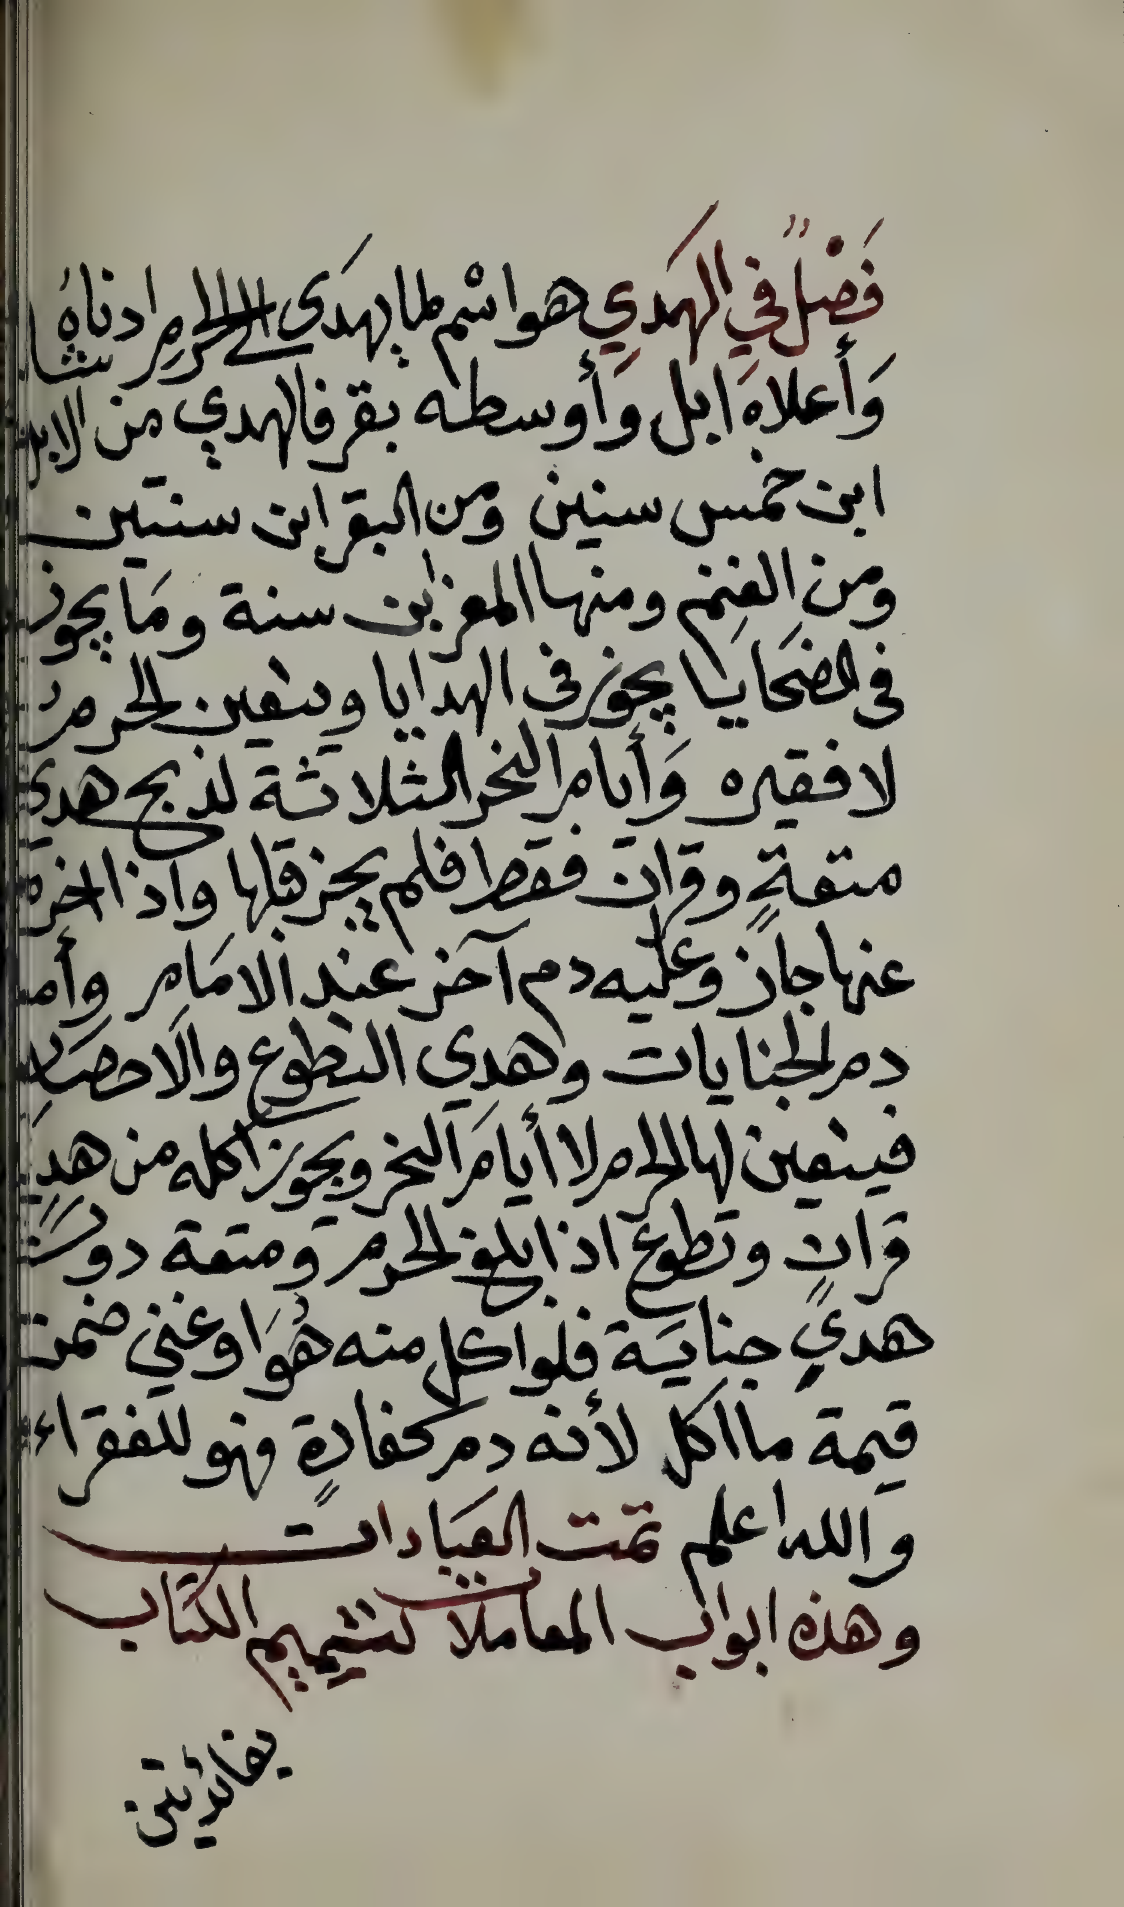 فَصْلٌ في الهَدي هو اسْم لما يهدَى الى الحرم ادناهُ شا
وَأَعلاهَ ابل وَأَوسطه بقر فالهدي من الابل
ابن خمس سنين ومن البقر ابن سنتين
ومن الغنم ومنها المعز ابن سنة ومَا يجوز
في الضحَايا يجوز في الهدايا ويتعين الحرمُ
لا فقيره وَأيام النحر الثلاثة لذبح هدي
متعةٍ وقران فقط فلم يجز قبلها واذا اخره
عنها جاز وعليه دم آخر عند الامَام وأما
دم الجنايات وهَدي التطوع والاحصَار
فيتعين لها الحرم لا أيامَ النحر ويجوز اكله من هدي
قرانٍ وتطوع اذا بلغ الحرم ومتعة دون
هدي جناية فلو اكل منه هُوَ او غني ضمن
قيمة ما اكل لأنه دم كفارةٍ فهو للفقراء
والله اعلم تمت العبَادات
وهذه ابواب المعاملات لتتميم الكتاب